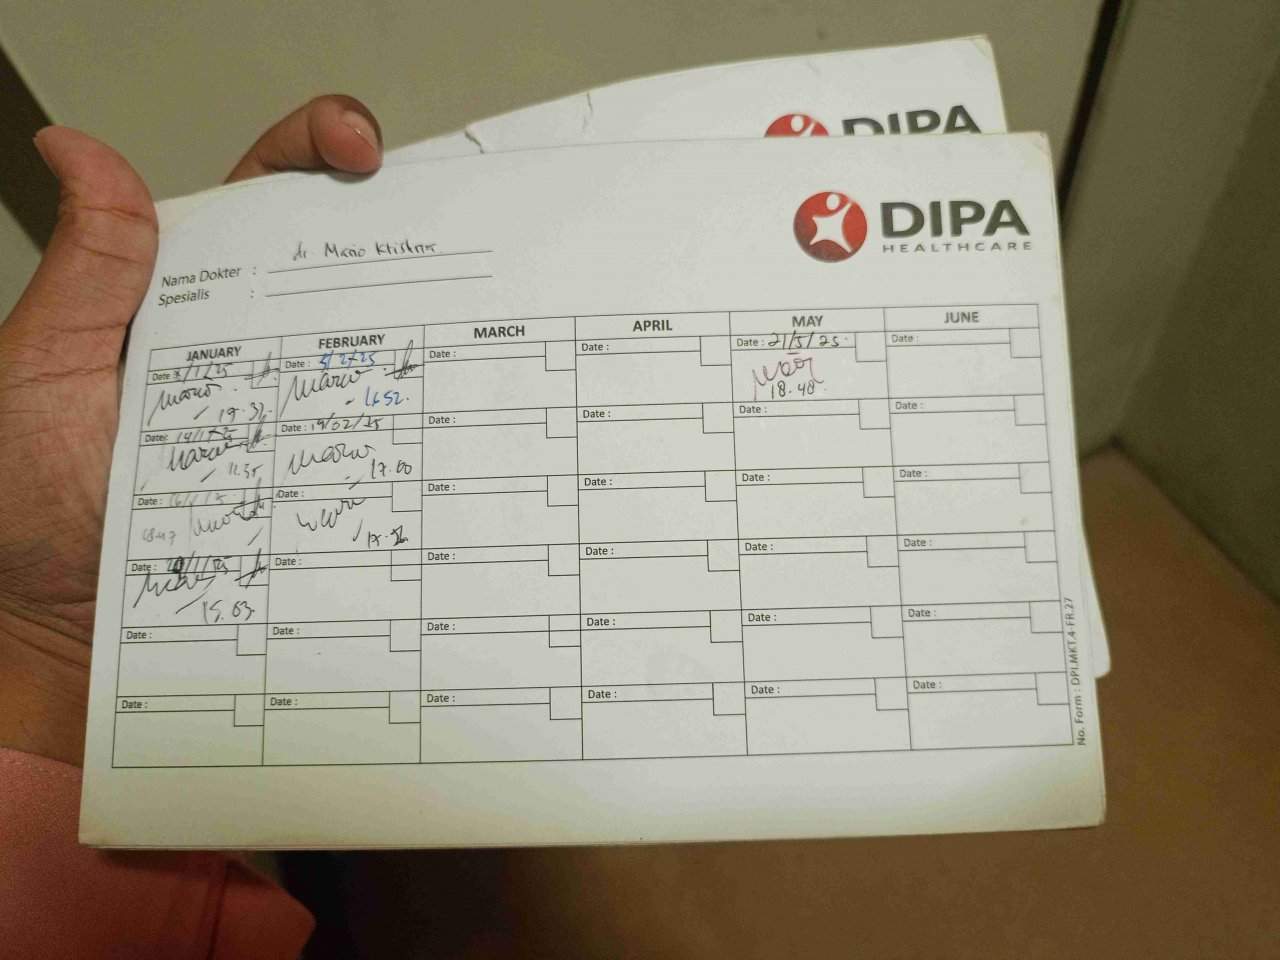 DIPA
DIPA
HEALTHCARE
Nama Dokter : dr. Mario
Spesialis :
JANUARY FEBRUARY MARCH APRIL MAY JUNE
Date : /1/25 Date : 5/2/25 Date : Date : Date : 21/5/25 Date :
Mario Mario
19.32 16.52. 18.48
Date : 14/1/25 Date : 19/02/25 Date : Date : Date : Date :
Mario Mario
11.35 17.00
Date : Date : Date : Date : Date : Date :
18.47
Date : /1/25 Date : Date : Date : Date : Date :
15.03
Date : Date : Date : Date : Date : Date :
Date : Date : Date : Date : Date : Date :
No. Form : DPI.MKT.4-FR.27